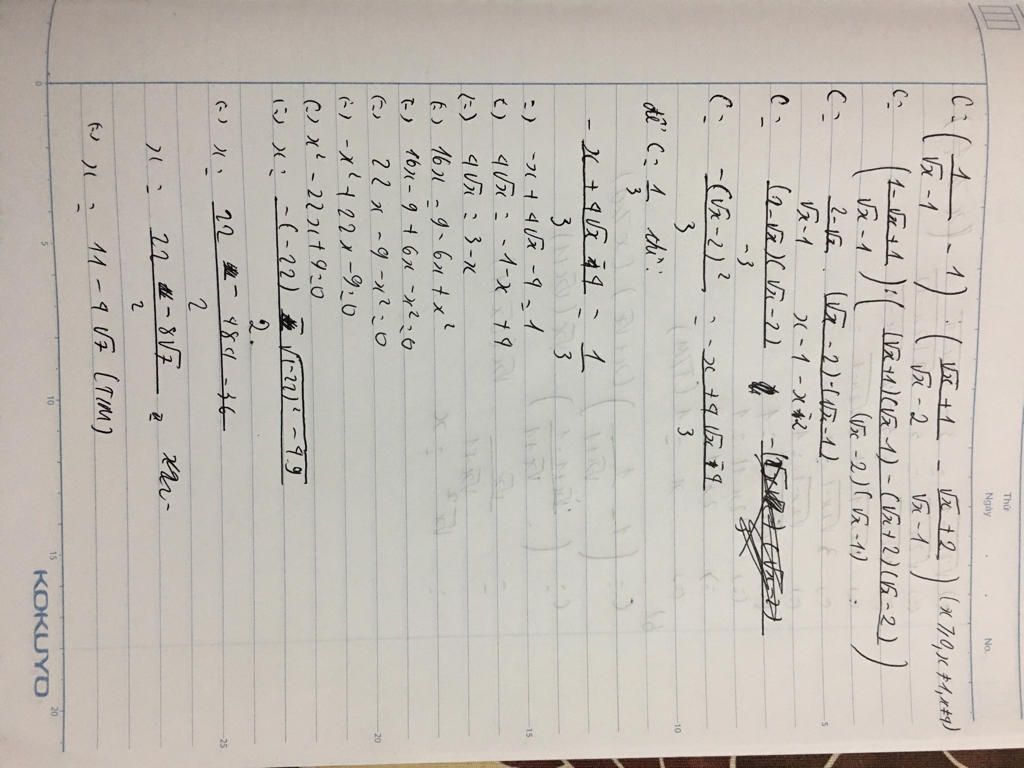 Thứ
Ngày
No.
C = (1/(√x-1) - 1) : ((√x+1)/(√x-2) - (√x+2)/(√x-1)) (x≥0, x≠1, x≠4)
C = ((1-√x+1)/(√x-1)) : (((√x+1)(√x-1) - (√x+2)(√x-2))/((√x-2)(√x-1)))
C = (2-√x)/(√x-1) . ((√x-2).(√x-1))/(x-1-x+2)
C = ((2-√x)(√x-2))/3
C = -(√x-2)²/3 = (-x+4√x-4)/3
để C = 1/3 thì:
(-x+4√x-4)/3 = 1/3
=) -x+4√x-4=1
=) 4√x = -1-x+4
(=) 4√x = 3-x
(=) 16x = 9-6x+x²
(=) 16x-9+6x-x²=0
(=) 22x-9-x²=0
(=) -x²+22x-9=0
(=) x²-22x+9=0
(=) x = (-(-22) - √((-22)²-4.9))/2.
(=) x = (22 - √484-36)/2
x = (22 - 8√7)/2 =
(=) x = 11-4√7 (T/M)
5
10
15
20
0
5
10
15
20
25
KOKUYO